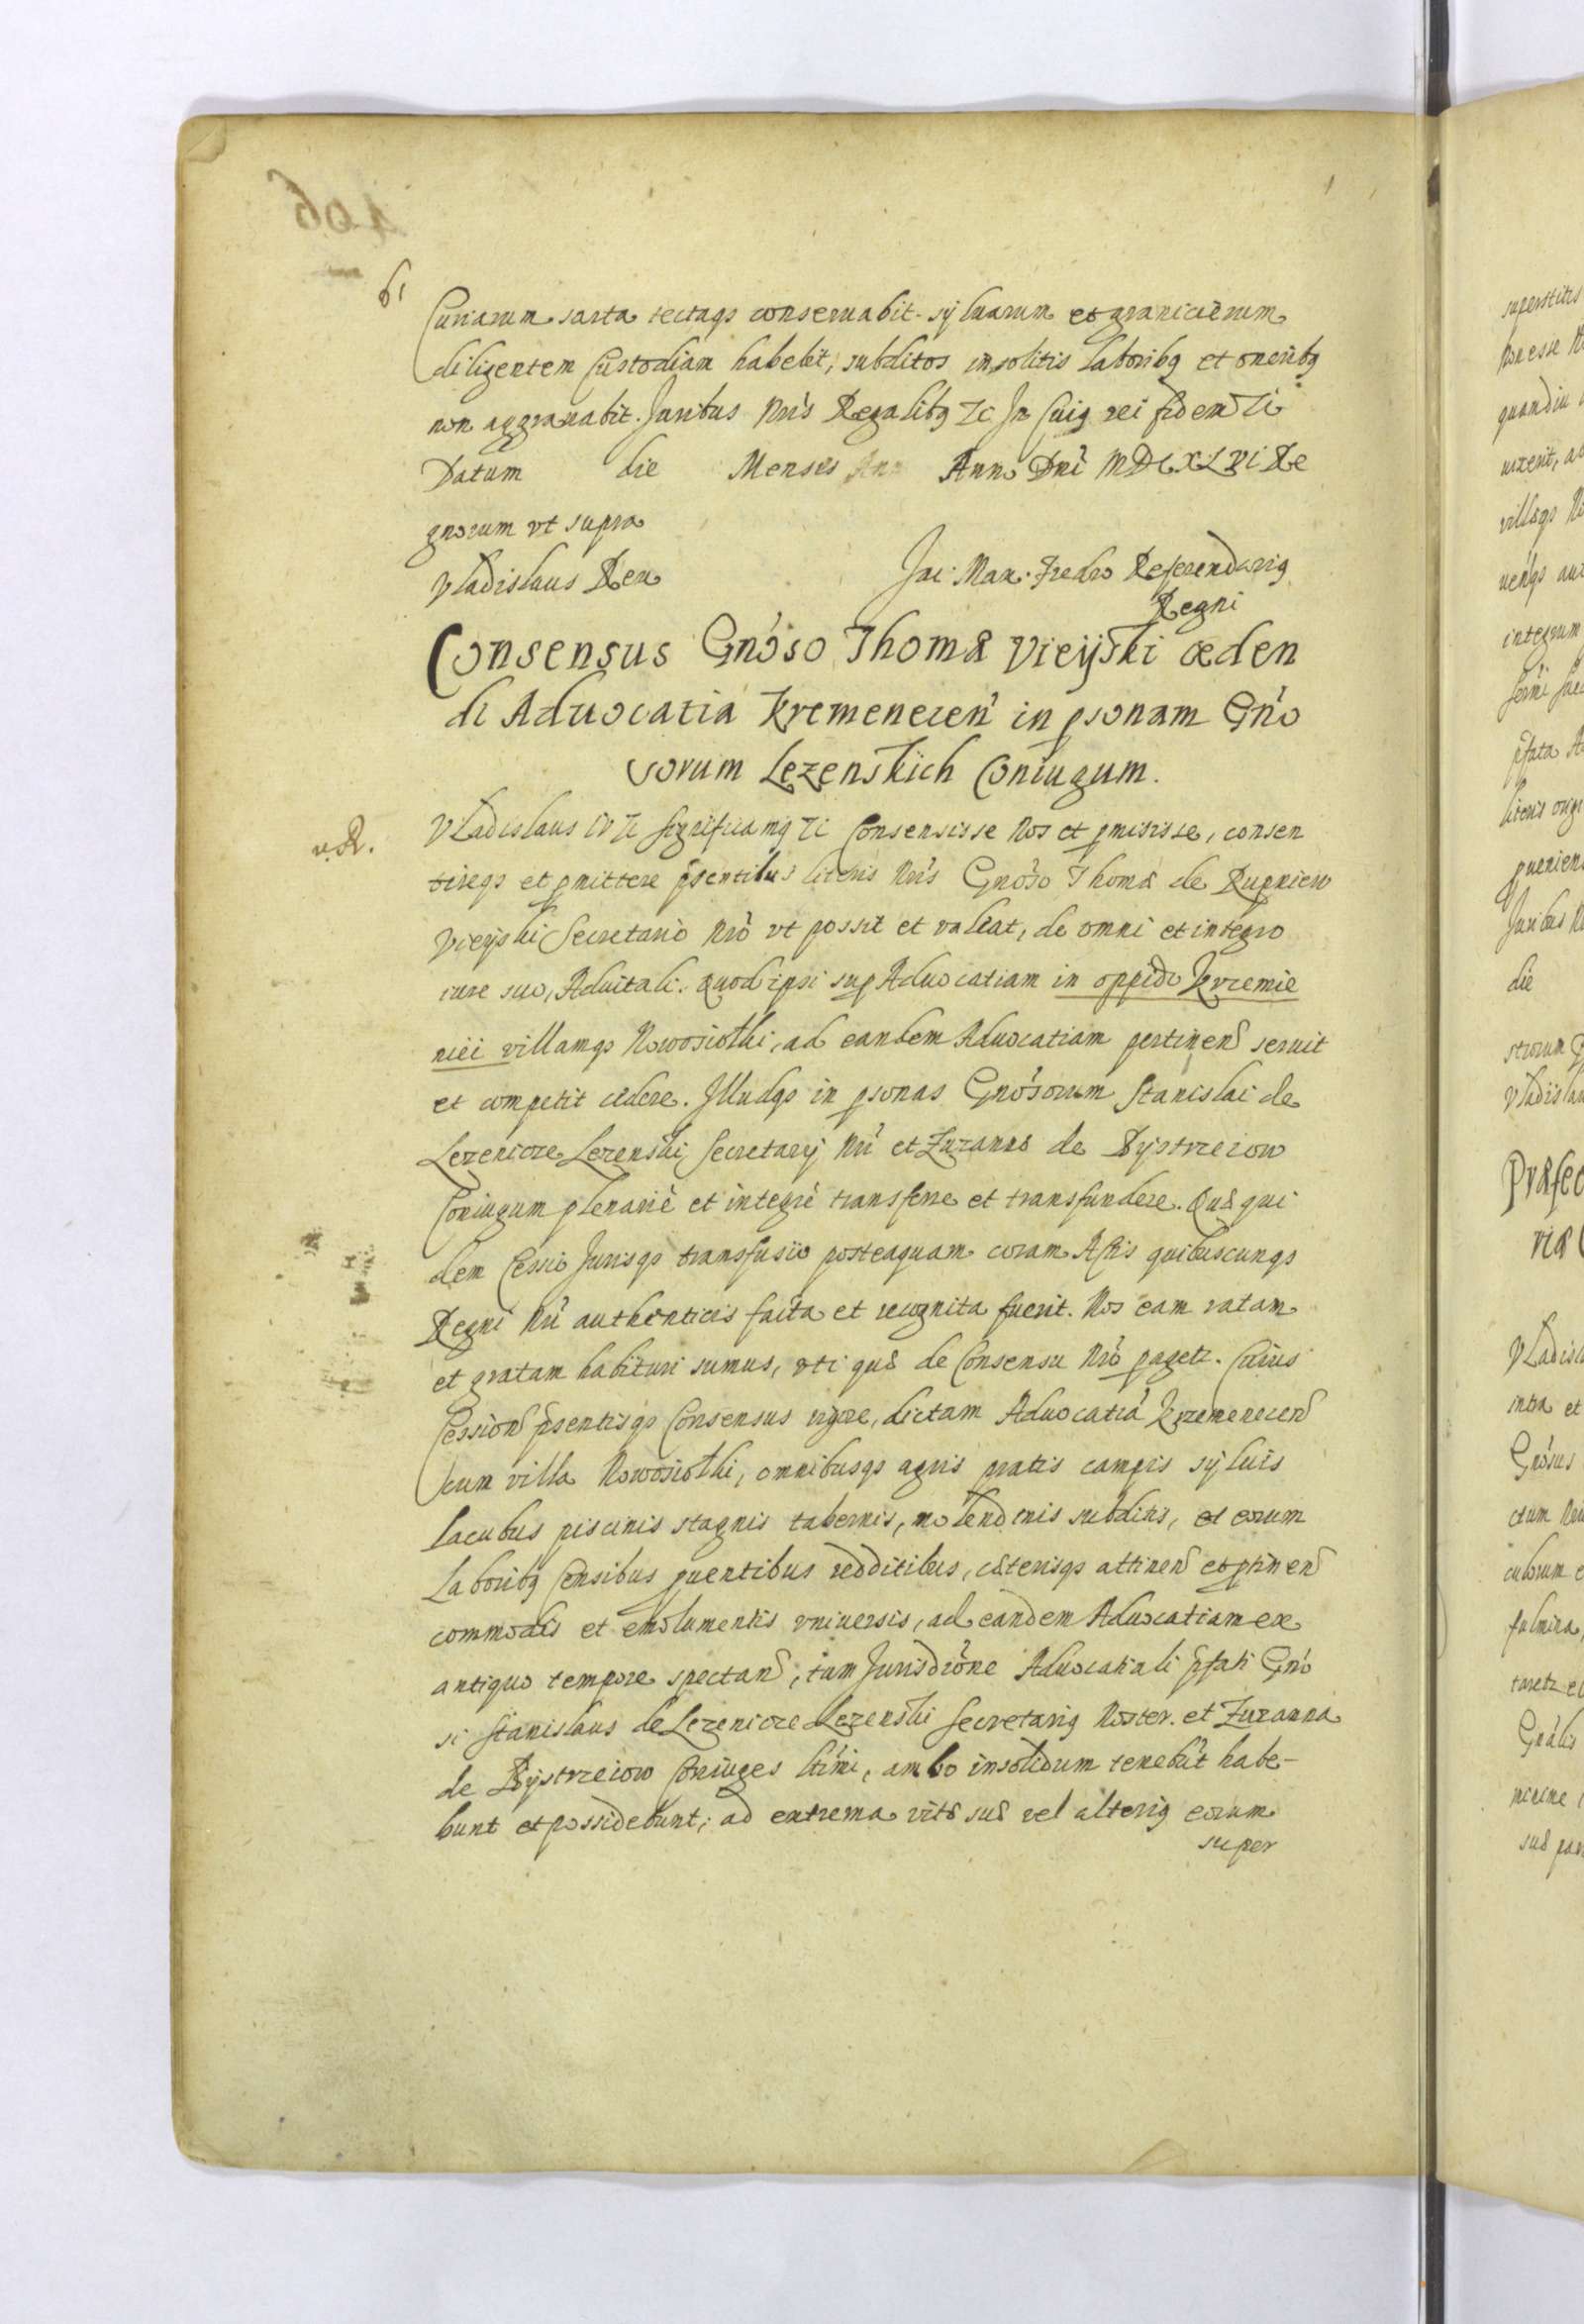 61
Curiarum sarta tectaqs conseruabit. syluarum et graniciérum
diligentem Custodiam habebit, subditos insolitis laboribq et oneribq
non aggrauabit. Juribus Nris Regalibq Tc In Cuiq rei fidem Tc
Datum die Mensis Ann Anno Dni MDCXLVI Re
gnorum vt supra
Vladislaus Rex Jac: Max. Fredro Referendariq
Regni
Consensus Gnoso Thomæ Vieÿski ceden
di Aduocatia Kremenecen in psonam Gno
sorum Lezenskich Coniugum.
v.R. Vladislaus IV Tc Significamq Tc Consensisse Nos et pmisisse, consen
tireqs et pmittere psentibus literis Nris Gnoso Thomæ de Rupniew
Vieÿski Secretario Nro vt possit et valeat, de omni et integro
iure suo, Aduitali. quod ipsi sup Aduocatiam in oppido Krzemie
niei villamqs Nowosiołki, ad eandem Aduocatiam pertinen seruit
et competit cedere. Illudqs in psonas Gnosorum Stanislai de
Lezenice Lezenski Secretarÿ Nri et Zuzannæ de Bÿstrzeiow
Coniugum plenariè et integrè transferre et transfundere. Quæ qui
dem Cessio Jurisqs transfusio posteaquam coram Actis quibuscunqs
Regni Nri authenticis facta et recognita fuerit. Nos eam ratam
et gratam habituri sumus, vti quæ de Consensu Nro pagetr. Cuius
Cession psentisqs Consensus vigore, dictam Aduocatia Krzemenecen
cum villa Nowosiołki, omnibusqs agris pratis campis sÿluis
lacubus piscinis stagnis tabernis, molendinis subditis, et eorum
Laboribq Censibus puentibus redditibus, cæterisqs attinen et ptinen
commodis et emolumentis vniuersis, ad eandem Aduocatiam ex
antiquo tempore spectan, tum Jurisdione Aduocatiali pfati Gno
si Stanislaus de Lezenice Lezenski Secretariq Noster. et Zuzanna
de Bÿstrzeiow Coniuges ltimi, ambo insolidum tenebut habe-
bunt et possidebunt; ad extrema vitæ suæ vel alteriq eorum
super